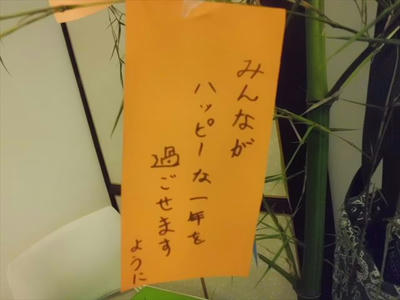 みんなが
ハッピーな一年を
過ごせます
ように